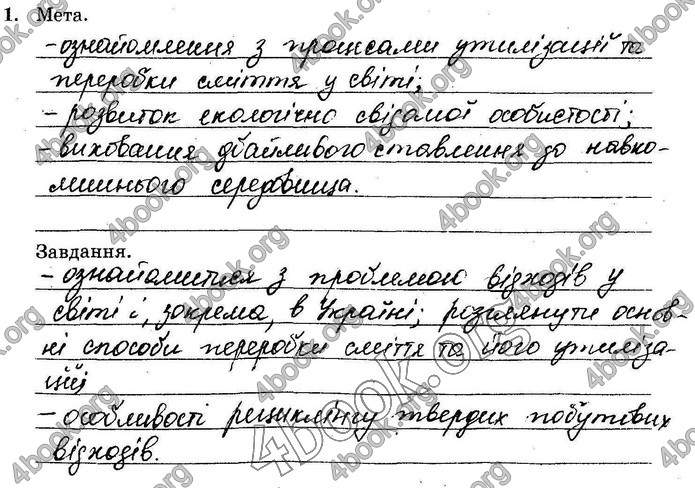 1. Мета.
- ознайомлення з процесами утилізації та
переробки сміття у світі;
- розвиток екологічно свідомої особистості;
- виховання дбайливого ставлення до навко-
лишнього середовища.
Завдання.
- ознайомитися з проблемою відходів у
світі і, зокрема, в Україні; розглянути основ-
ні способи переробки сміття та його утиліза-
ції
- особливості рециклінгу твердих побутових
відходів.
4book.org